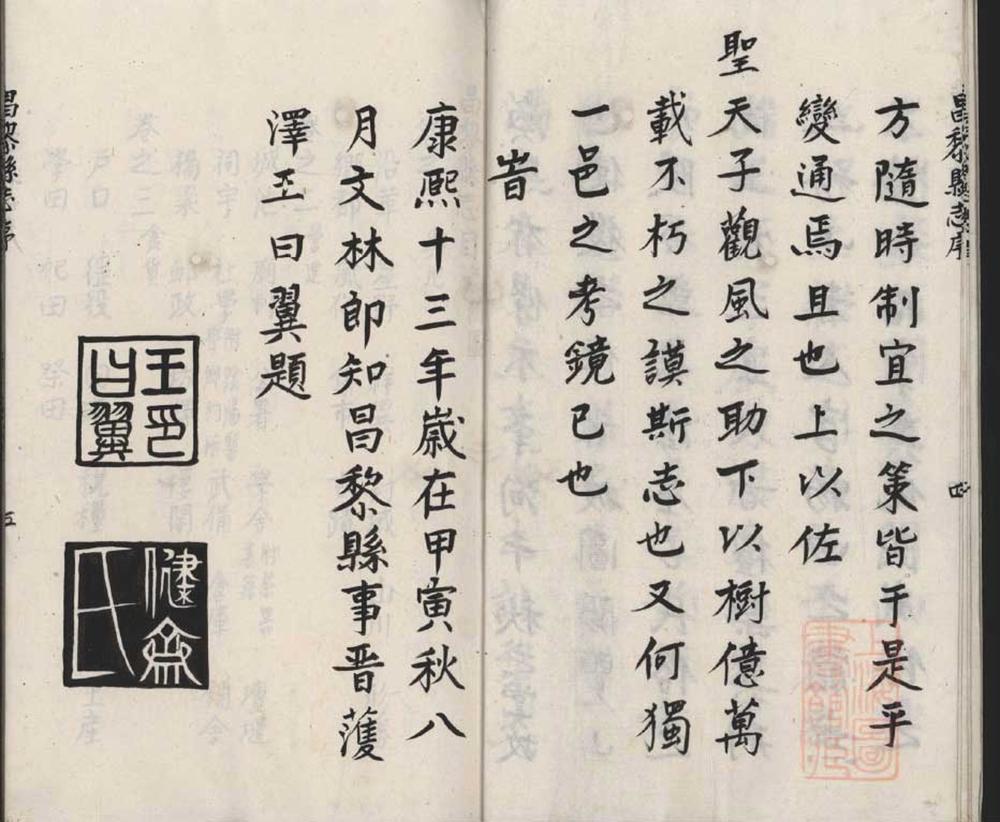 昌黎縣志序
四
方隨時制宜之策皆于是乎
變通焉且也上以佐
聖天子觀風之助下以樹億萬
載不朽之謨斯志也又何獨
一邑之考鏡已也
旹
康熙十三年歲在甲寅秋八
月文林郎知昌黎縣事晋蒦
澤王曰翼題
王印曰翼
健齋氏
昌黎縣志序
五